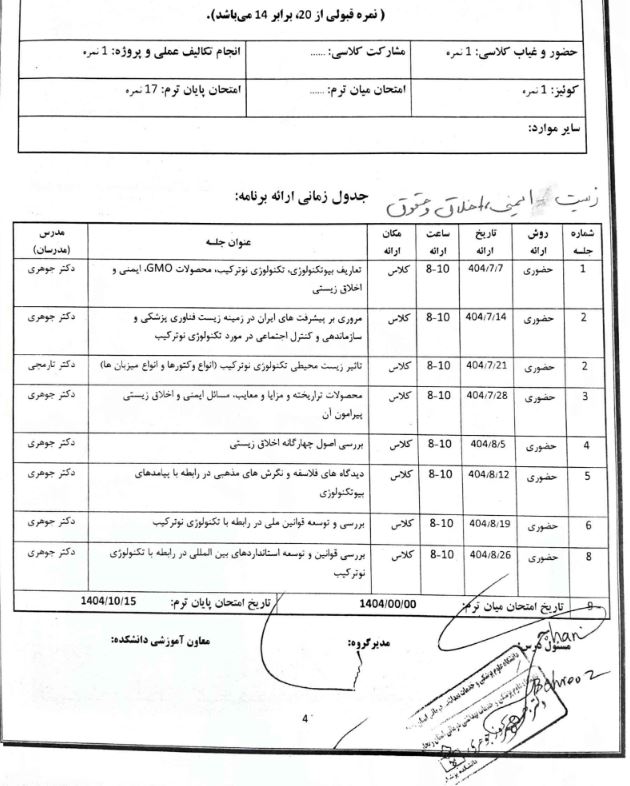 ( نمره قبولی از 20، برابر 14 می‌باشد).
حضور و غیاب کلاسی: 1 نمره مشارکت کلاسی: ...... انجام تکالیف عملی و پروژه: 1 نمره
کوئیز: 1 نمره امتحان میان ترم: ...... امتحان پایان ترم: 17 نمره
سایر موارد:
جدول زمانی ارائه برنامه: زیست ایمنی، اخلاق و حقوق
شماره جلسه روش ارائه تاریخ ارائه ساعت ارائه مکان ارائه عنوان جلسه مدرس (مدرسان)
1 حضوری 404/7/7 8-10 کلاس تعاریف بیوتکنولوژی، تکنولوژی نوترکیب، محصولات GMO، ایمنی و دکتر جوهری
اخلاق زیستی
2 حضوری 404/7/14 8-10 کلاس مروری بر پیشرفت های ایران در زمینه زیست فناوری پزشکی و دکتر جوهری
سازماندهی و کنترل اجتماعی در مورد تکنولوژی نوترکیب
2 حضوری 404/7/21 8-10 کلاس تاثیر زیست محیطی تکنولوژی نوترکیب (انواع وکتورها و انواع میزبان ها) دکتر تارمجی
3 حضوری 404/7/28 8-10 کلاس محصولات تراریخته و مزایا و معایب، مسائل ایمنی و اخلاق زیستی دکتر جوهری
پیرامون آن
4 حضوری 404/8/5 8-10 کلاس بررسی اصول چهارگانه اخلاق زیستی دکتر جوهری
5 حضوری 404/8/12 8-10 کلاس دیدگاه های فلاسفه و نگرش های مذهبی در رابطه با پیامدهای دکتر جوهری
بیوتکنولوژی
6 حضوری 404/8/19 8-10 کلاس بررسی و توسعه قوانین ملی در رابطه با تکنولوژی نوترکیب دکتر جوهری
8 حضوری 404/8/26 8-10 کلاس بررسی قوانین و توسعه استانداردهای بین المللی در رابطه با تکنولوژی دکتر جوهری
نوترکیب
9 تاریخ امتحان میان ترم: 1404/00/00 تاریخ امتحان پایان ترم: 1404/10/15
مسئول درس: مدیرگروه: معاون آموزشی دانشکده:
4